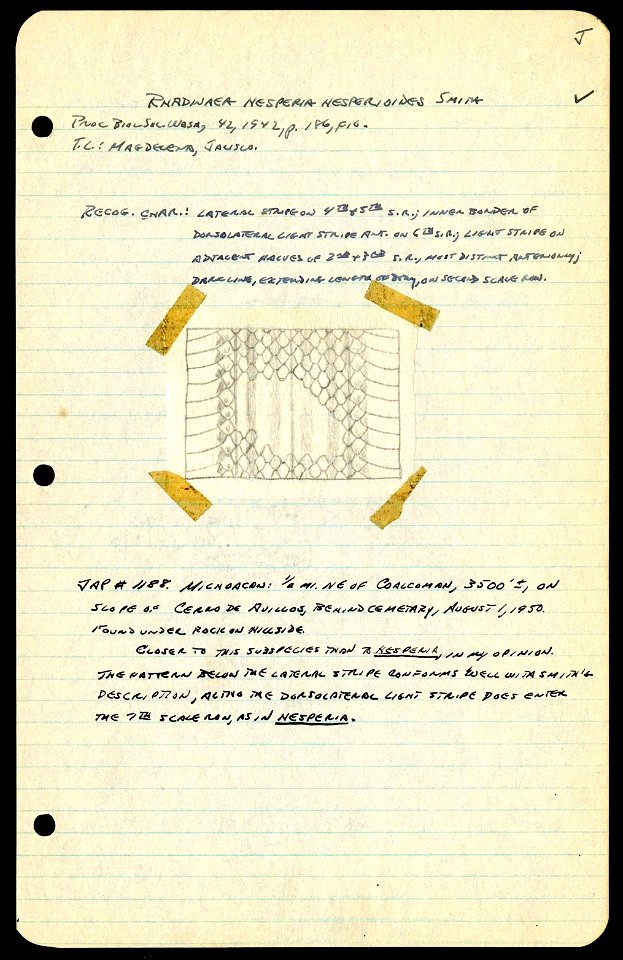 J
✓
RHADINAEA HESPERIA HESPERIOIDES SMITH
PROC. BIOL. SOC. WASH, 42, 1942, p. 186, FIG.
T.L.: MAGDELENA, JALISCO.
RECOG. CHAR.: LATERAL STRIPE ON 4TH + 5TH S.R.; INNER BORDER OF
DORSOLATERAL LIGHT STRIPE ANT. ON 6TH S.R.; LIGHT STRIPE ON
ADJACENT HALVES OF 2ND + 3RD S.R., MOST DISTINCT ANTERIORLY;
DARK LINE, EXTENDING LENGTH OF BODY, ON SECOND SCALE ROW.
JAP # 1188. MICHOACAN: 1/2 MI. NE OF COALCOMAN, 3500'±, ON
SLOPE OF CERRO DE AUILLOS, BEHIND CEMETARY, AUGUST 1, 1950.
FOUND UNDER ROCK ON HILLSIDE.
CLOSER TO THIS SUBSPECIES THAN TO HESPERIA, IN MY OPINION.
THE PATTERN BELOW THE LATERAL STRIPE CONFORMS WELL WITH SMITH'S
DESCRIPTION, ALTHO THE DORSOLATERAL LIGHT STRIPE DOES ENTER
THE 7TH SCALE ROW, AS IN HESPERIA.